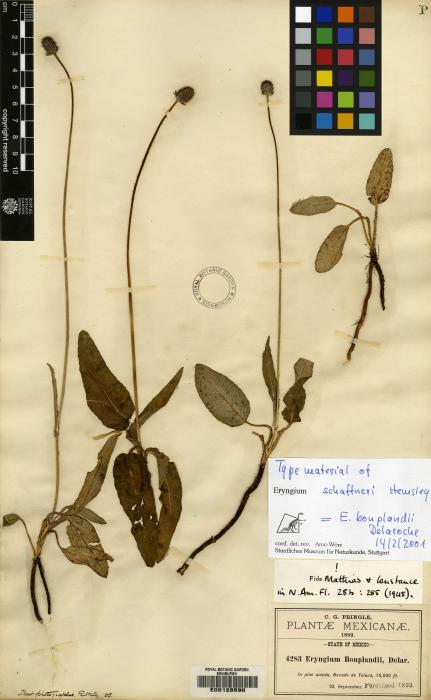 cm
copyright reserved
ROYAL BOTANIC GARDEN
EDINBURGH
Type material of
Eryngium schaffneri Hemsley
= E. bouplandii
Delaroche
14/2/2001
conf. det. rev. Arno Wörz
Staatliches Museum für Naturkunde, Stuttgart
!
Fide Mathias & Constance
in N. Am. Fl. 28b : 285 (1945).
C. G. PRINGLE,
PLANTÆ MEXICANÆ.
1892.
STATE OF MEXICO
4283 Eryngium Bonplandii, Delar.
in pine woods, Nevado de Toluca, 10,000 ft.
September. Purchased 1893.
ROYAL BOTANIC GARDEN
EDINBURGH
E00128590
05